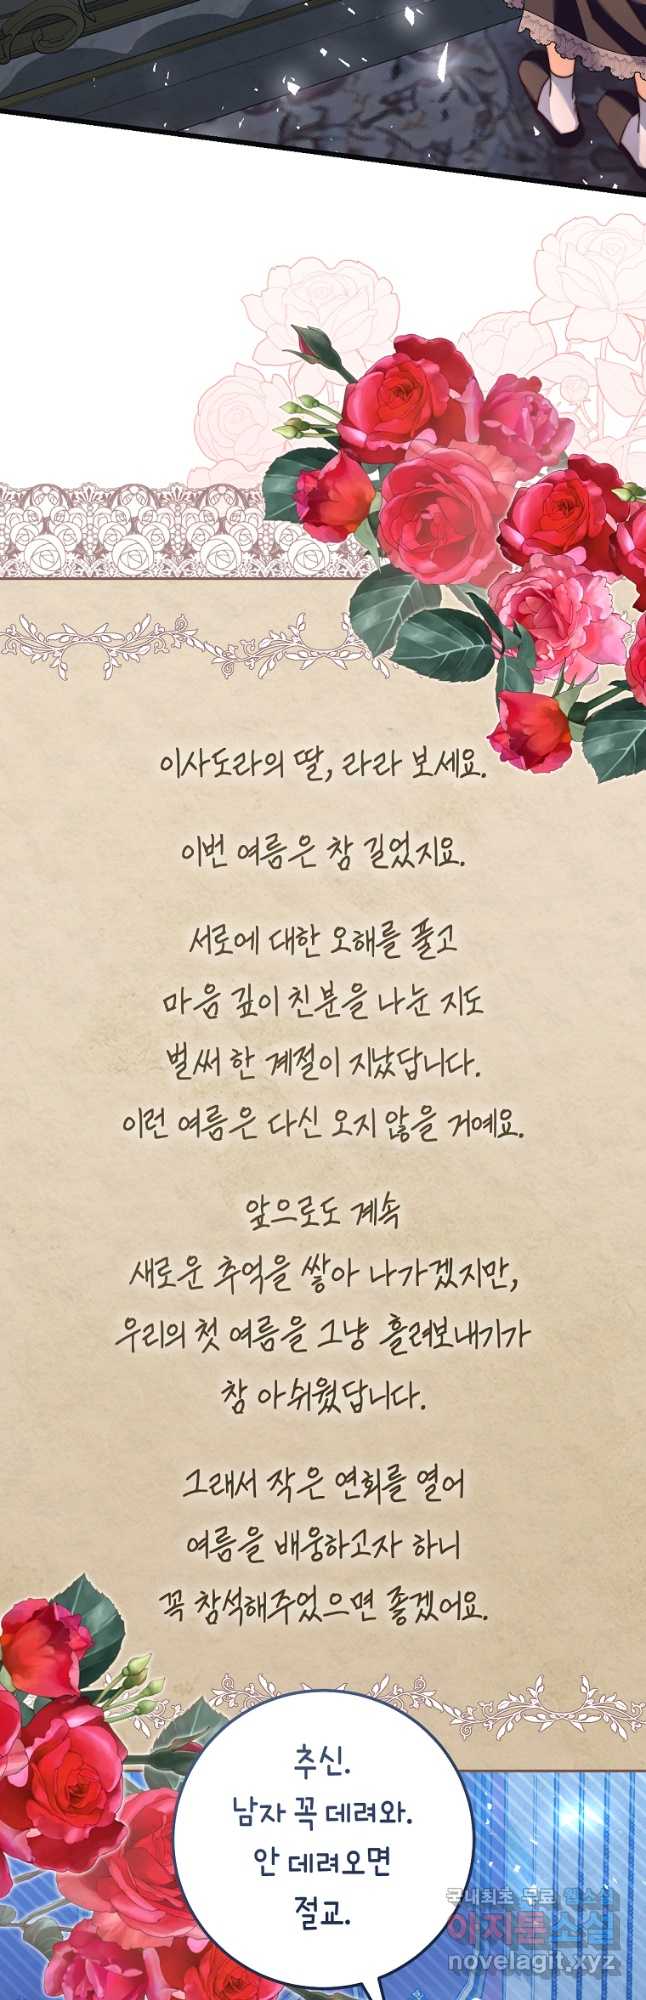 이사도라의 딸, 라라 보세요.
이번 여름은 참 길었지요.
서로에 대한 오해를 풀고
마음 깊이 친분을 나눈 지도
벌써 한 계절이 지났답니다.
이런 여름은 다신 오지 않을 거예요.
앞으로도 계속
새로운 추억을 쌓아 나가겠지만,
우리의 첫 여름을 그냥 흘려보내기가
참 아쉬웠답니다.
그래서 작은 연회를 열어
여름을 배웅하고자 하니
꼭 참석해주었으면 좋겠어요.
추신.
남자 꼭 데려와.
안 데려오면
절교.
국내최초 무료 웹소설
아지툰소설
novelagit.xyz